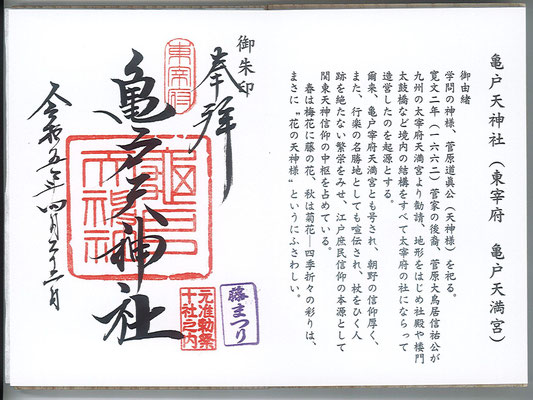 亀戸天神社（東宰府　亀戸天満宮）
御由緒
学問の神様、菅原道眞公（天神様）を祀る。
寛文二年（一六六二）菅家の後裔、菅原大鳥居信祐公が
九州の太宰府天満宮より勧請、地形をはじめ社殿や楼門
太鼓橋など境内の結構をすべて太宰府の社にならって
造営したのを起源とする。
爾来、亀戸宰府天満宮とも号され、朝野の信仰厚く、
また、行楽の名勝地としても喧伝され、杖をひく人
跡を絶たない繁栄をみせ、江戸庶民信仰の本源として
関東天神信仰の中枢を占めている。
春は梅花に藤の花、秋は菊花―四季折々の彩りは、
まさに〝花の天神様〟というにふさわしい。
御朱印
奉拝
東宰府
亀戸天神社
藤まつり
元准勅祭
十社之内
令和五年四月